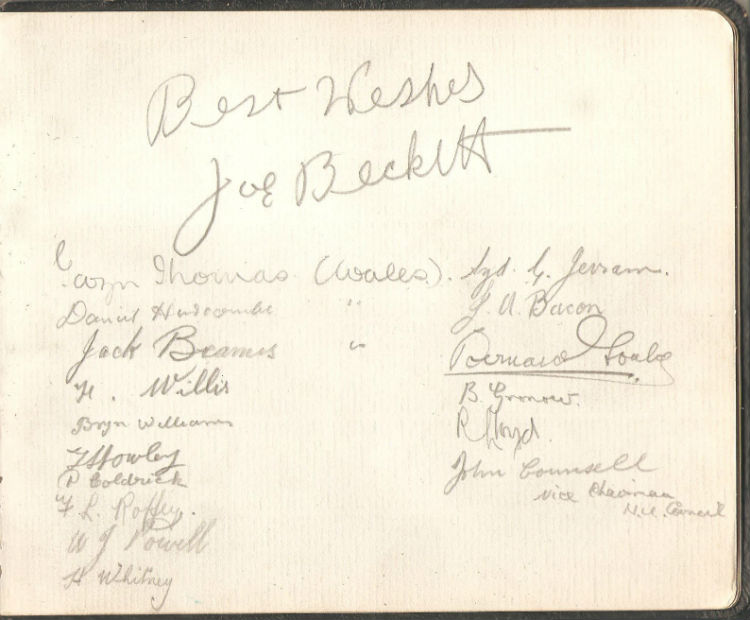 Best Wishes
Joe Beckett
Gwyn Thomas (Wales).
Daniel Huscombe "
Jack Beames "
H. Willis
Bryn Williams
Howley
P Coldrick
F. L. Roffey.
W J Powell
H Whitney
Sgt. G. Jerram.
A. Bacon
Bernard
B. Gronow.
R Lloyd.
John Counsell
Vice Chairman
N.U. Council